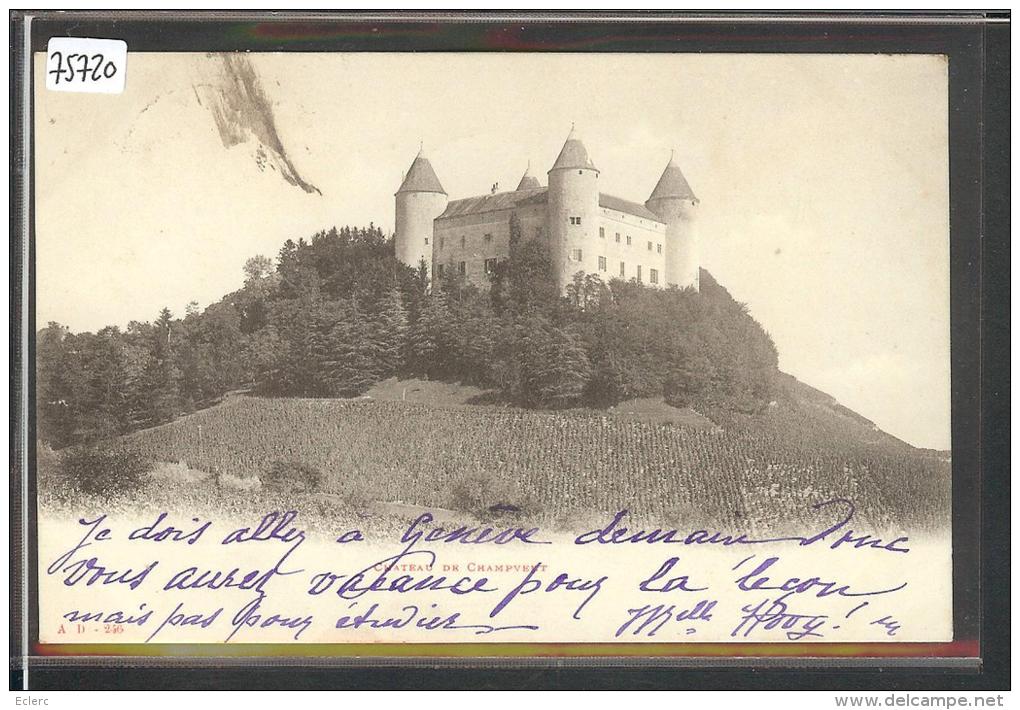 75720
Je dois aller à Genève demain Donc
CHATEAU DE CHAMPVENT
vous aurez vacance pour la leçon
mais pas pour étudier Mlle Hoog!
A D - 246
Eclerc
www.delcampe.net